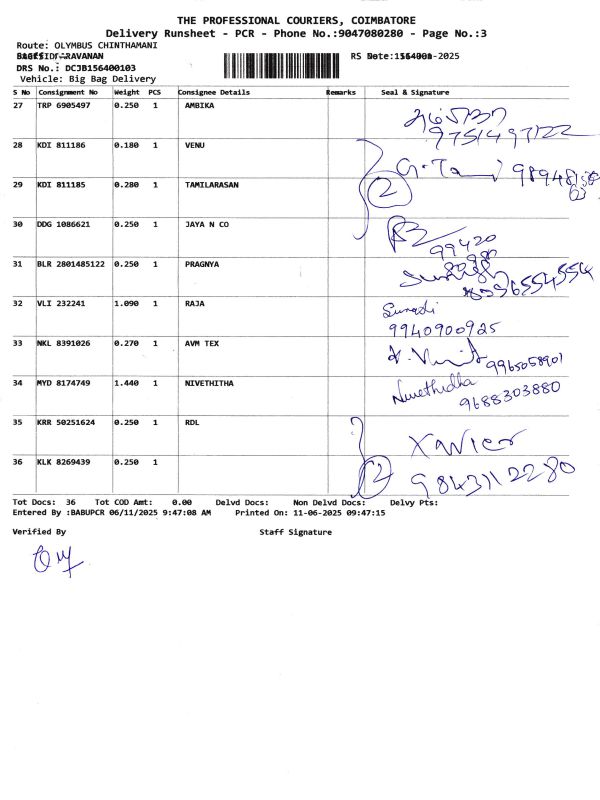 THE PROFESSIONAL COURIERS, COIMBATORE
Delivery Runsheet - PCR - Phone No.:9047080280 - Page No.:3
Route: OLYMBUS CHINTHAMANI
DRS No.: DCJB156400103
RS Date: -2025
Vehicle: Big Bag Delivery
S No Consignment No Weight PCS Consignee Details Remarks Seal & Signature
27 TRP 6905497 0.250 1 AMBIKA
9751497122
28 KDI 811186 0.180 1 VENU
29 KDI 811185 0.280 1 TAMILARASAN
2
30 DDG 1086621 0.250 1 JAYA N CO
99420
31 BLR 2801485122 0.250 1 PRAGNYA
32 VLI 232241 1.090 1 RAJA
9940900925
33 NKL 8391026 0.270 1 AVM TEX
9965058901
34 MYD 8174749 1.440 1 NIVETHITHA Nivethidha
9688303880
35 KRR 50251624 0.250 1 RDL
XAVIER
36 KLK 8269439 0.250 1
2 9843112280
Tot Docs: 36 Tot COD Amt: 0.00 Delvd Docs: Non Delvd Docs: Delvy Pts:
Entered By :BABUPCR 06/11/2025 9:47:08 AM Printed On: 11-06-2025 09:47:15
Verified By Staff Signature